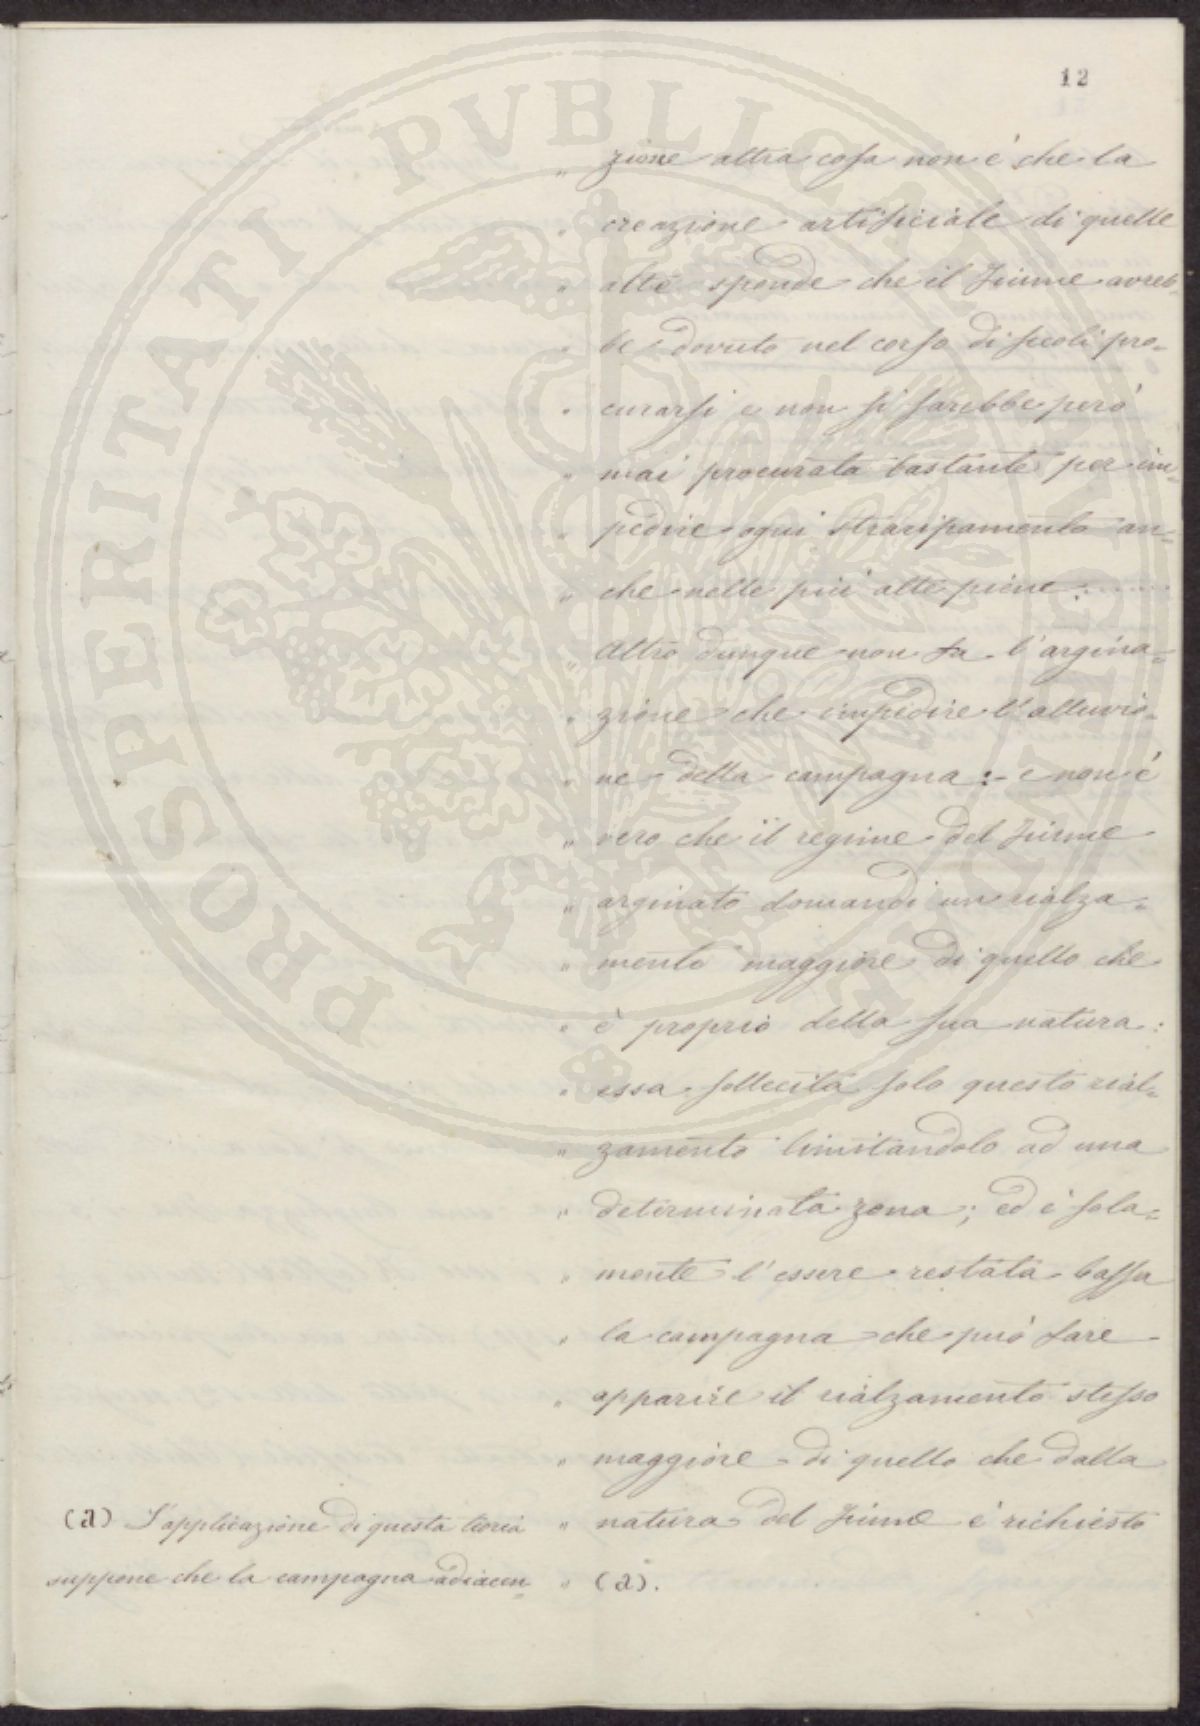 12
" zione altra cosa non è che la
" creazione artificiale di quelle
" alte sponde che il fiume avreb-
" be dovuto nel corso di secoli pro-
" curarsi e non si sarebbe però
" mai procurata bastante per im-
" pedire ogni straripamento an-
" che nelle più alte piene: ......
" Altro dunque non fa l'argina-
" zione che impedire l'alluvio-
" ne della campagna :- e non è
" vero che il regime del fiume
" arginato domandi un rialza-
" mento maggiore di quello che
" è proprio della sua natura:
" essa sollecita solo questo rial-
" zamento limitandolo ad una
" determinata zona; ed è sola-
" mente l'essere restata bassa
" la campagna che può fare
" apparire il rialzamento stesso
" maggiore di quello che dalla
" natura del fiume è richiesto
" (a).
(a) L'applicazione di questa teoria
suppone che la campagna adiacen-
PROSPERITATI PVBLICAE AVGENDAE